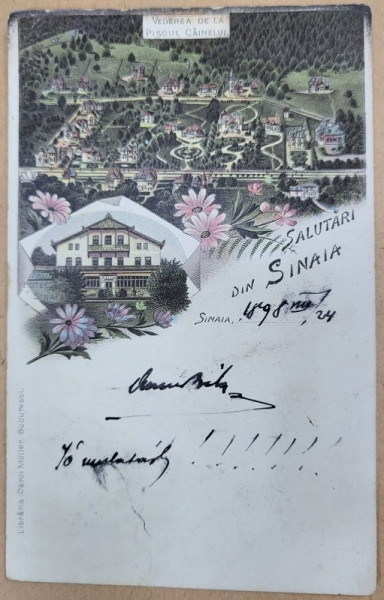 VEDEREA DE LA
PISCUL CÂINELUI
SALUTĂRI
DIN SINAIA
SINAIA, 1898 24
Jó mulatást !!!!!!
Librăria Carol Müller, Bucuresci.